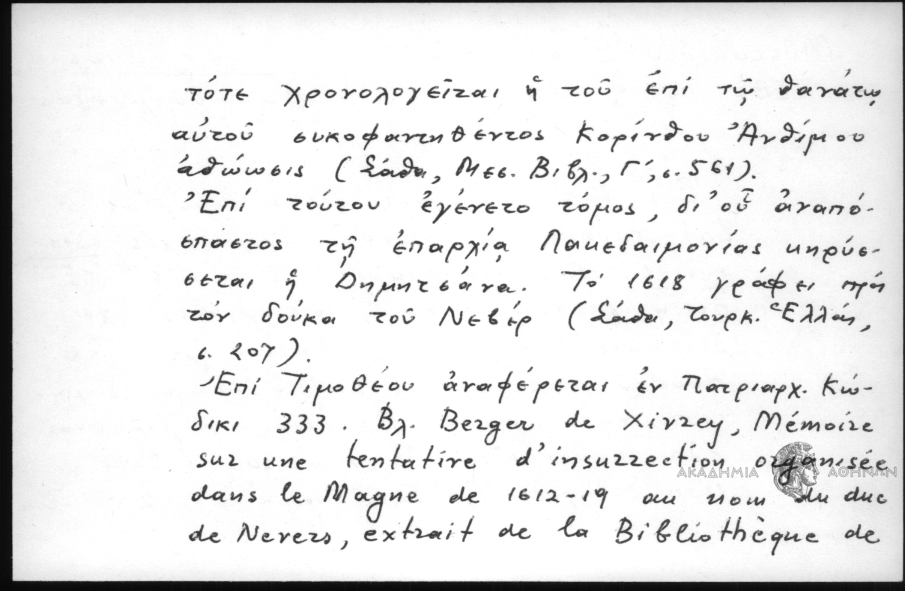 τότε χρονολογεῖται ἡ τοῦ ἐπί τῷ θανάτῳ
αὐτοῦ συκοφαντηθέντος Κορίνθου Ἀνθίμου
ἀθώωσις (Σάθα, Μεσ. Βιβλ., Γ΄, σ. 561).
Ἐπί τούτου ἐγένετο τόμος, δι' οὗ ἀναπό-
σπαστος τῇ ἐπαρχίᾳ Λακεδαιμονίας κηρύσ-
σεται ἡ Δημητσάνα. Τό 1618 γράφει πρός
τόν δούκα τοῦ Νεβέρ (Σάθα, Τουρκ. Ἑλλάς,
σ. 207).
Ἐπί Τιμοθέου ἀναφέρεται ἐν Πατριαρχ. Κώ-
δικι 333. Βλ. Berger de Xivrey, Mémoire
sur une tentative d'insurrection organisée
dans le Magne de 1612-19 au nom du duc
de Nevers, extrait de la Bibliothèque de
ΑΚΑΔΗΜΙΑ ΑΘΗΝΩΝ